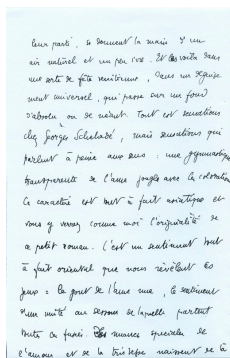 leur parti, se donnent la main d'un
air naturel et un peu ivre. Et les voilà dans
une sorte de fête vénitienne, dans un déguise
ment universel, qui passe sur un fond
d'absolu ou de néant. Tout est sensations
chez Georges Schehadé, mais sensations qui
parlent à peine aux sens : une gymnastique
transparente de l'âme jongle avec la coloration
Ce caractère est tout à fait asiatique et
vous y verrez comme moi l'originalité de
ce petit roman. C'est un sentiment tout
à fait oriental que nous révèlent ces
jeux : le goût de l'âme une, le sentiment
d'une unité au dessous de laquelle partent
toutes ces fusées. Des nuances spéciales de
l'amour et de la tristesse naissent de là